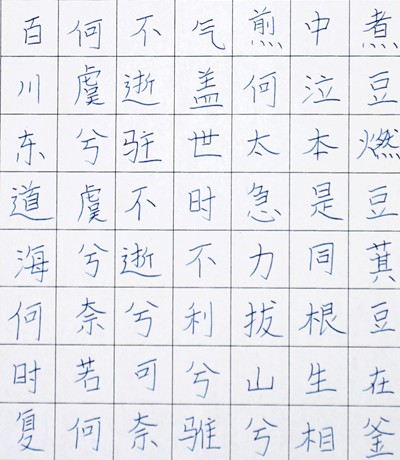 煮豆燃豆萁豆在釜
中泣本是同根生相
煎何太急力拔山兮
气盖世时不利兮骓
不逝骓不逝兮可奈
何虞兮虞兮奈若何
百川东道海何时复